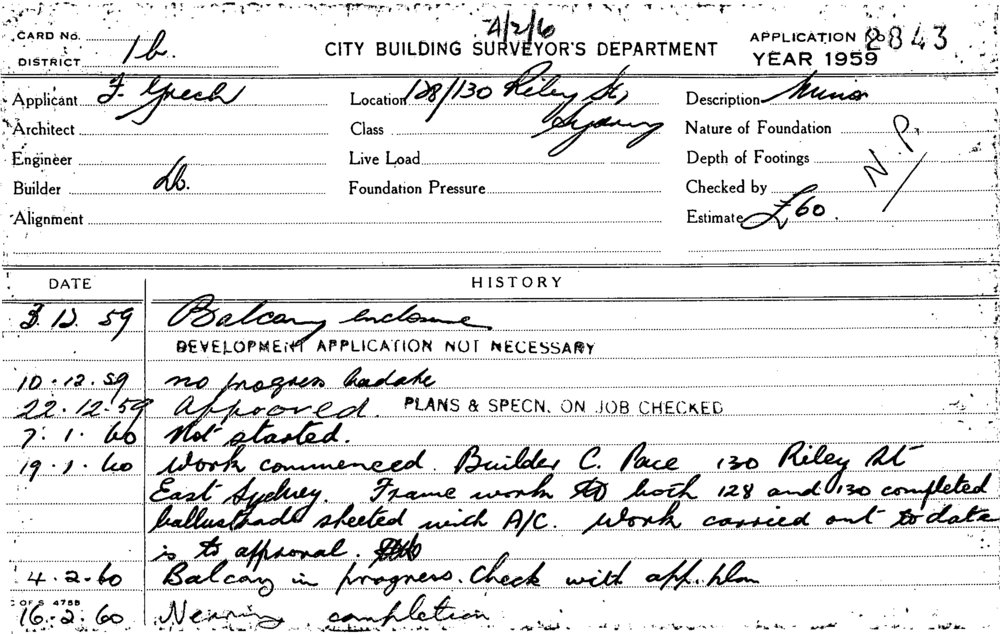 4/2/6
CARD No.
DISTRICT 1b
CITY BUILDING SURVEYOR'S DEPARTMENT
APPLICATION No 2843
YEAR 1959
Applicant F. Grech
Location 128/130 Riley St, Sydney
Description Minor
Architect
Class
Nature of Foundation
N.P.
Engineer
Live Load
Depth of Footings
Builder Do.
Foundation Pressure
Checked by
Alignment
Estimate £60.
DATE HISTORY
3.12.59 Balcony enclosure
DEVELOPMENT APPLICATION NOT NECESSARY
10.12.59 no progress
22.12.59 Approved. PLANS & SPECN. ON JOB CHECKED
7.1.60 Not started.
19.1.60 Work commenced. Builder C. Pace 130 Riley St
East Sydney. Frame work to both 128 and 130 completed
ballustrade sheeted with A/C. Work carried out to date
is to approval.
4.2.60 Balcony in progress. Check with app. plan
C OF S 4758
16.2.60 Nearing completion